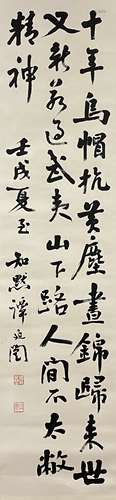 十年烏帽抗黃塵晝錦歸來世
又新若過武夷山下路人間不太敝
精神
壬戌夏至 知默譚延闓